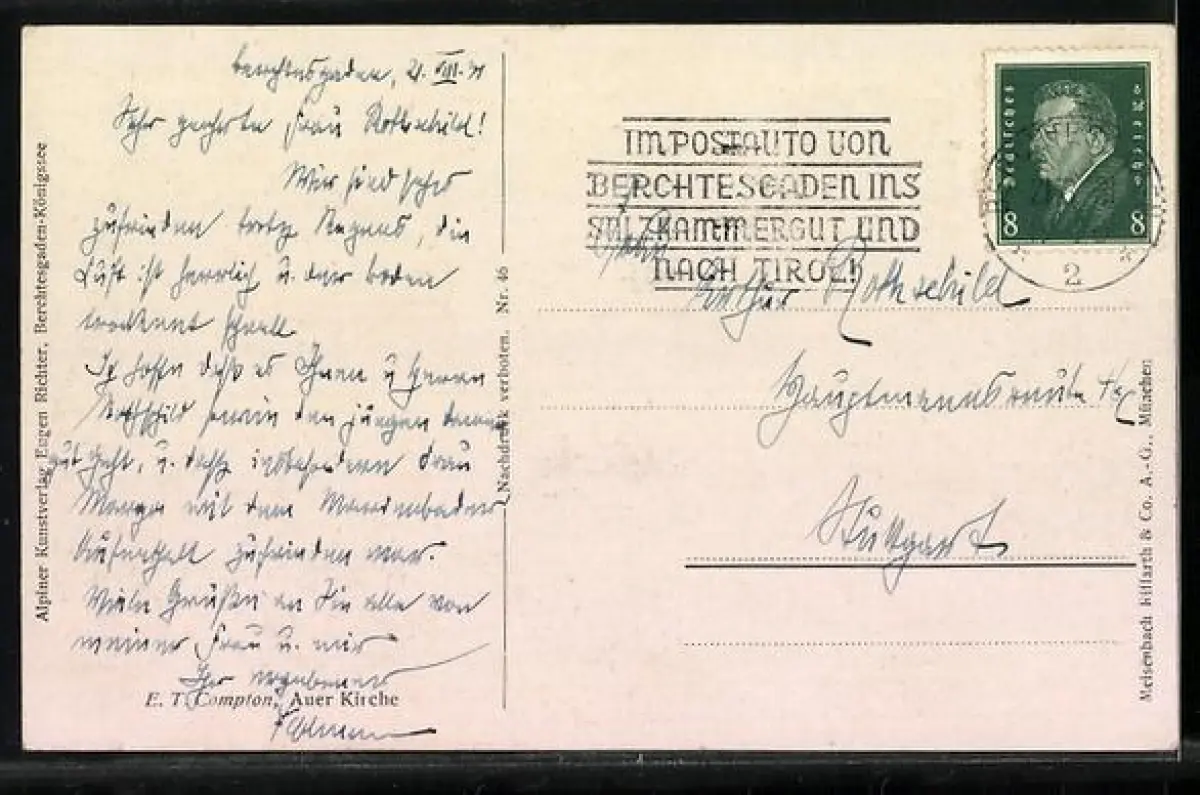 Berchtesgaden, 21. VIII. 31
Sehr geehrte Frau Rothschild!
Wir sind sehr
zufrieden trotz Regens, die
Luft ist herrlich u. der Boden
trocknet schnell.
Ich hoffe daß es Ihnen u Herrn
Rothschild sowie den jungen
gut geht, u. daß insbesondere Frau
mit dem Marienbader
Aufenthalt zufrieden war.
Viele Grüße an Sie alle von
meiner Frau u. mir
Ihr ergebener
E. T. Compton, Auer Kirche
Alpiner Kunstverlag Eugen Richter, Berchtesgaden-Königssee
Nachdruck verboten. Nr. 46
IM POSTAUTO VON
BERCHTESGADEN INS
SALZKAMMERGUT UND
NACH TIROL!
Deutsches Reich
8 8
2
Frau
Arthur Rothschild
Hauptmannsreute
Stuttgart
Meisenbach Riffarth & Co. A.-G., München